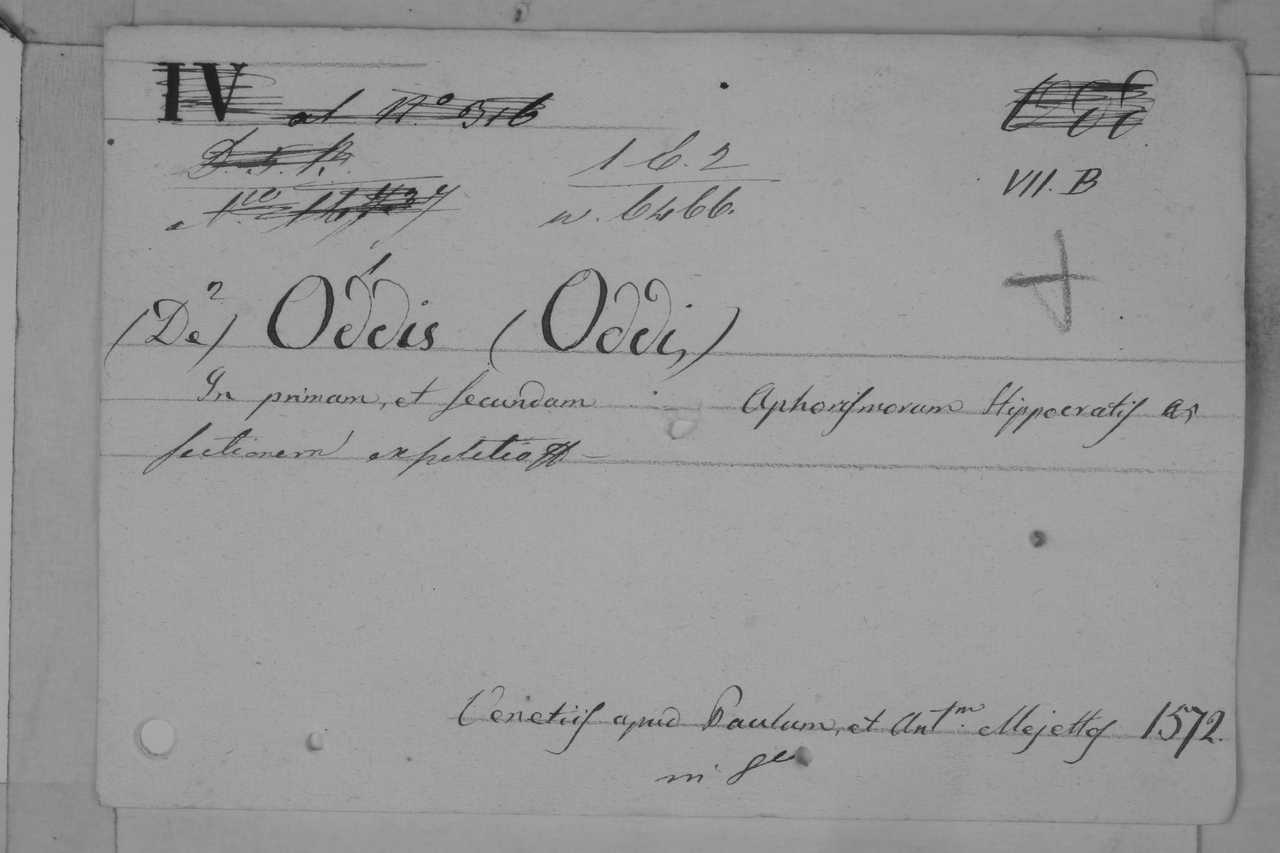 IV al N.º 516
VII. B
1 6. 2
n. 6466.
(De) Oddis (Oddi,)
In primam, et secundam Aphorismorum Hippocratis
sectionem
Venetiis apud Paulum, et Ant.m Mejettos 1572.
in 8º